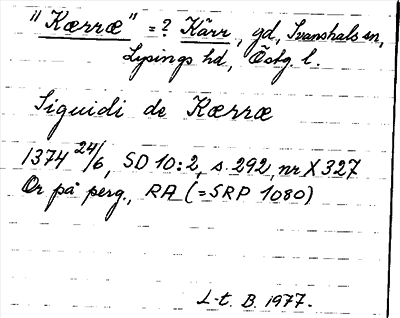 "Kærræ" = ? Kärr, gd, Ivanshals sn,
Lysings hd, Östg. l.
Siguidi de Kærræ
1374 24/6, SD 10:2, s. 292, nr X 327
Or på perg., RA (=SRP 1080)
L-t. B. 1977.